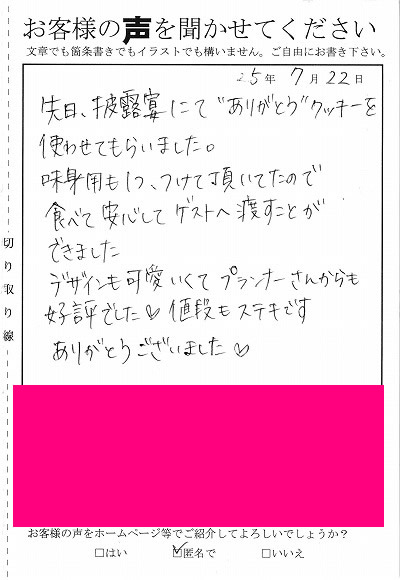 お客様の声を聞かせてください
文章でも箇条書きでもイラストでも構いません。ご自由にお書き下さい。
25年 7月22日
先日、披露宴にて"ありがとう"クッキーを
使わせてもらいました。
味見用も1つ、つけて頂いてたので
食べて安心してゲストへ渡すことが
できました
デザインも可愛いくてプランナーさんからも
好評でした♡ 値段もステキです
ありがとうございました♡
切り取り線
お客様の声をホームページ等でご紹介してよろしいでしょうか？
□はい ☑匿名で □いいえ